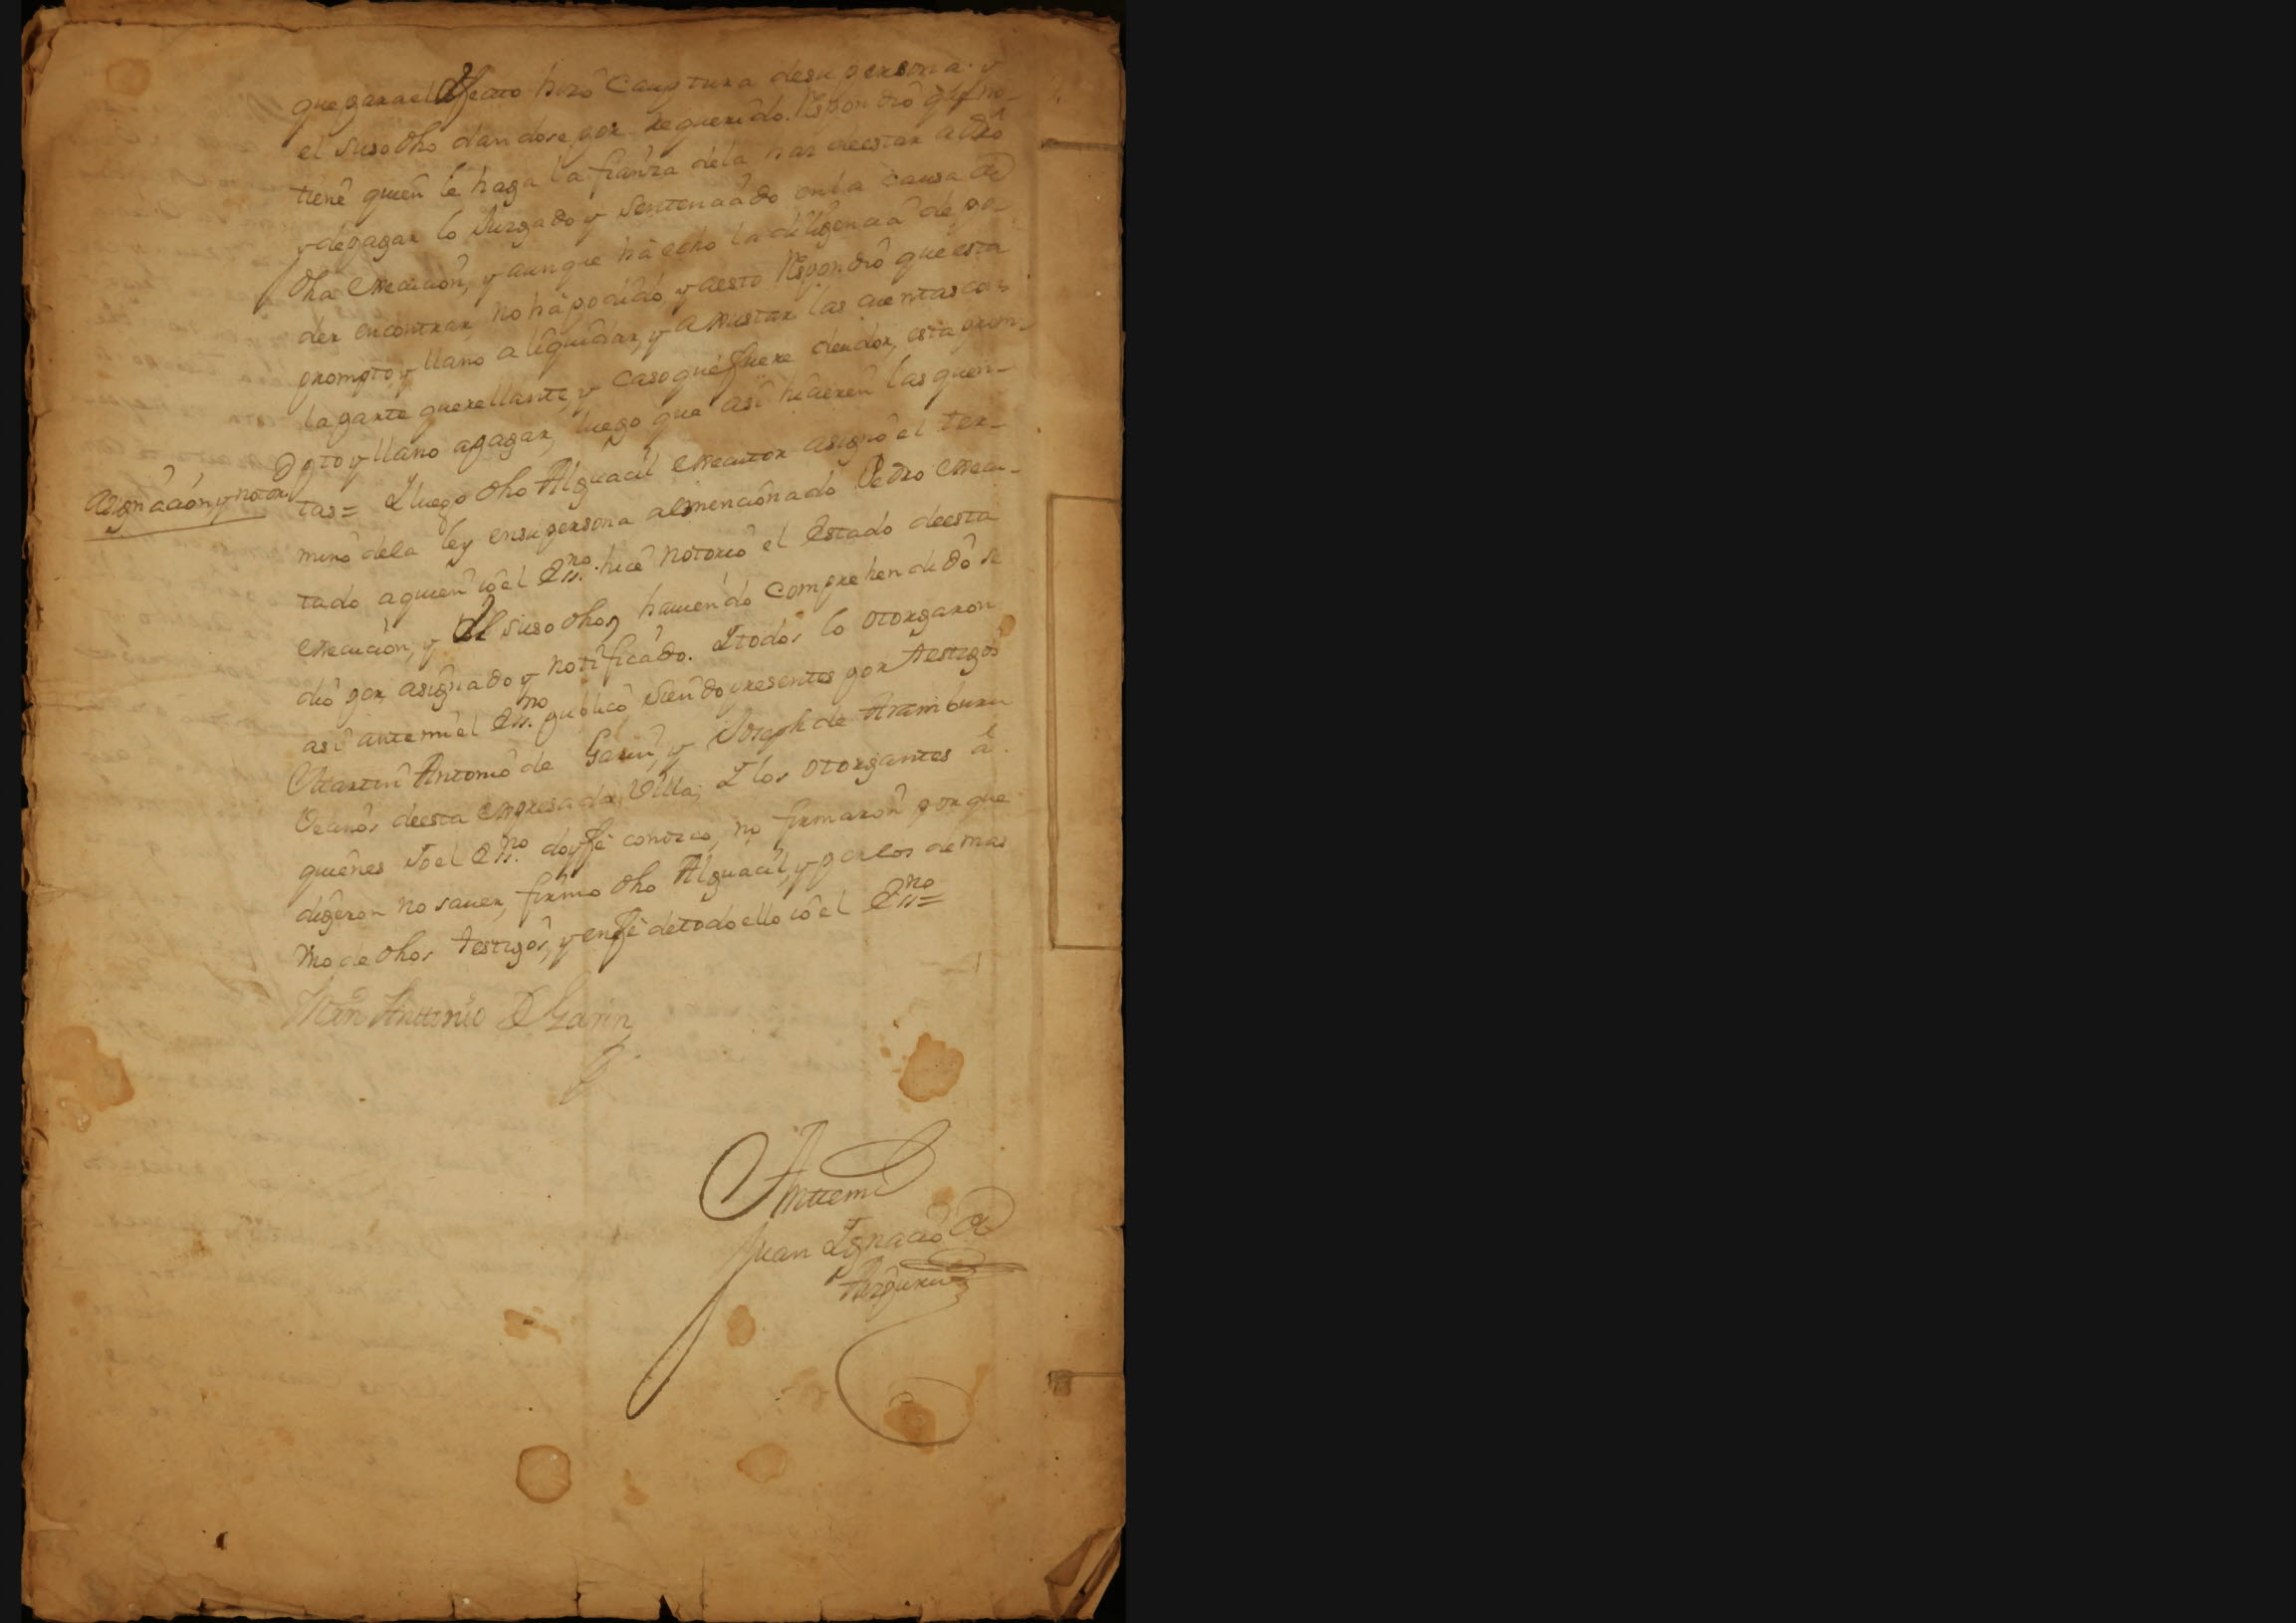 que para el efecto hizo Cauptura de su persona y
el suso dho dandose por requerido. Respondió que no
tiene quien le haga la fianza de la haz de estar a dro
y de pagar lo Juzgado y Sentenciado en la causa de
dha execucion, y aunque há echo la diligencia de po-
der encontrar, no há podido, y a esto Respondió que esta
prompto, y llano a liquidar, y axustar las cuentas con
la parte querellante, y caso que fuere deudor, esta prom-
pto y llano a pagar, luego que asi hicieren las quen-
Asignacion, y notori
tas = Y luego dho Alguacil executor asignó el ter-
mino de la ley en su persona al mencionado Pedro execu-
tado a quien io el Essno. hice notorio el Estado de esta
execucion, y el suso dho, haviendo comprehendido se
dió por asignado y notificado. Y todos lo otorgaron
asi ante mi el Essno. publico siendo presentes por testigos
Martin Antonio de Garin, y Joseph de Aramburu
Vecinos de esta expresada Villa; Y los otorgantes á
quienes io el Essno. doy fé conozco, no firmaron porque
digeron no saver, firmo dho Alguacil, y por los demas
Uno de dhos testigos, y en fé de todo ello io el Essno =
Mrn Anttonio D Garin
Anttemi
Juan Ignacio de